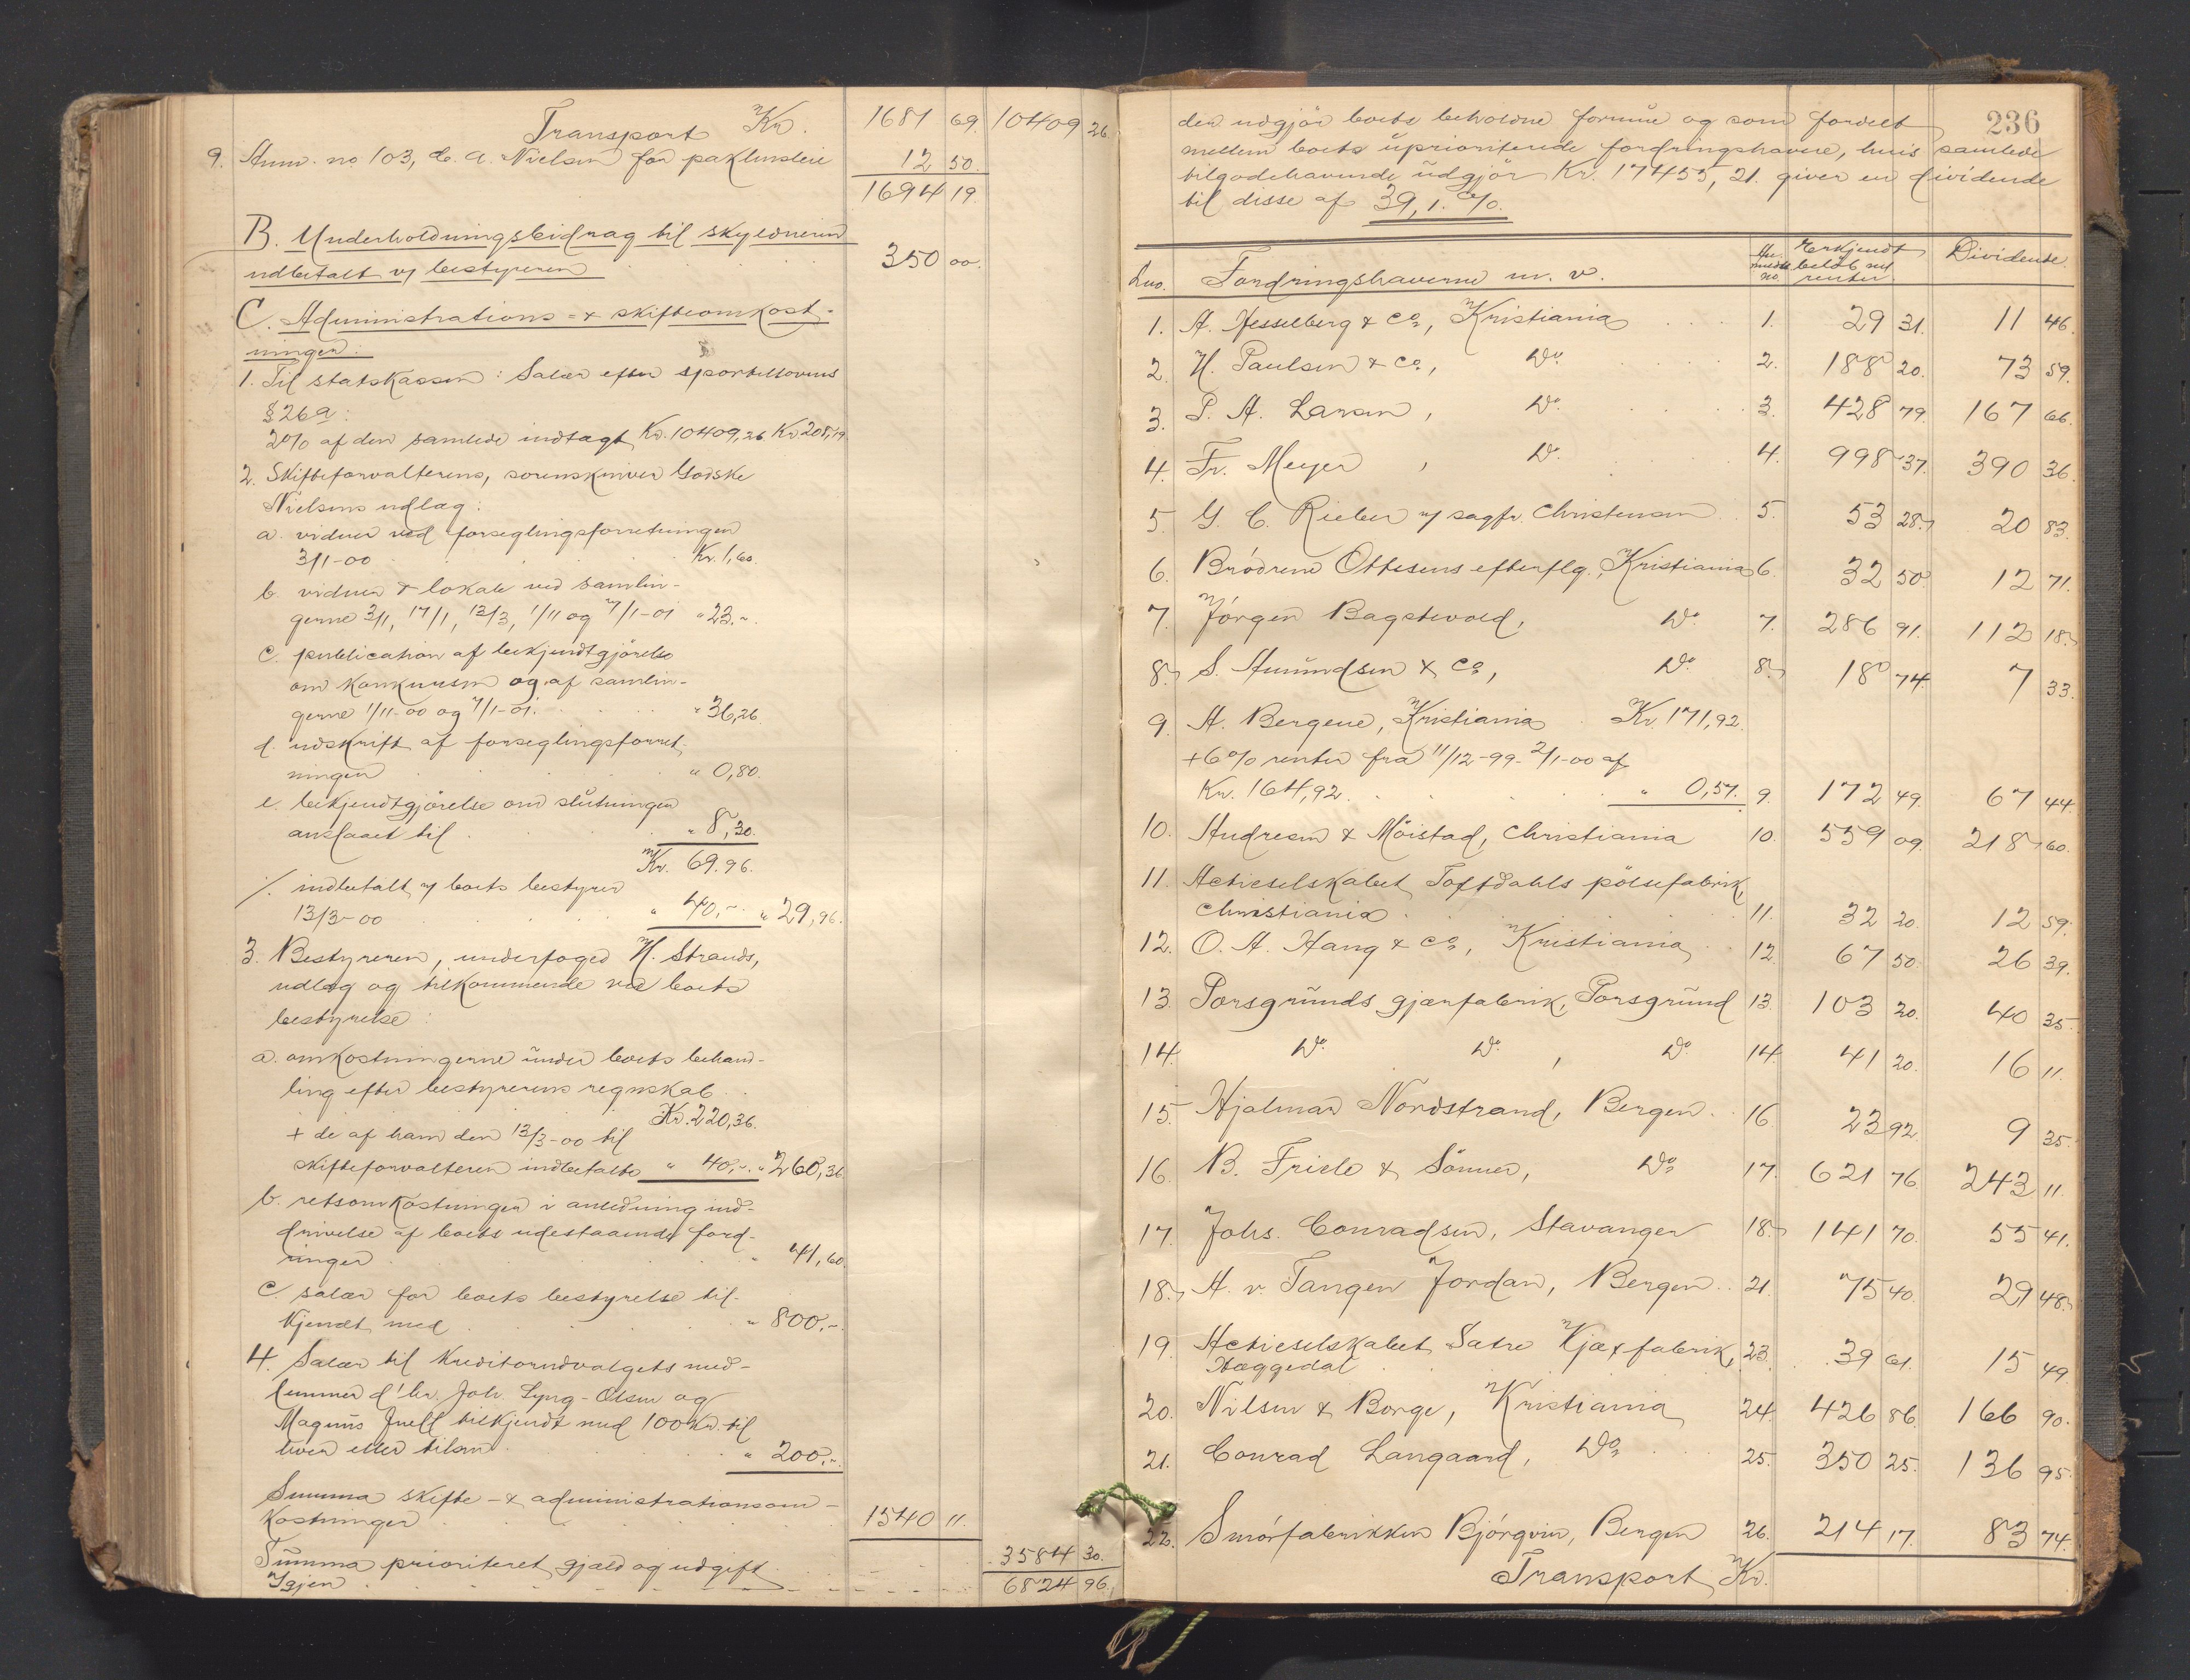 Transport Kr. 1681 69. 10409 26
9. Anm. no 103, C. A. Nielsen for pakhusleie 12 50.
1694 19.
B. Underholdningsbidrag til skyldneren
udbetalt v/ bestyreren 350 00.
C. Administrations- & skifteomkost-
ninger:
1. Til statskassen: Salær efter sportellovens
§ 26a:
2% af den samlede indtægt Kr. 10409,26 Kr 208,19
2. Skifteforvalterens, sorenskriver Godske
Nielsens udlæg:
a. vidner ved forseglingsforretningen
3/1-00 Kr. 1,60.
b. vidner & lokale ved samlin-
gerne 3/1, 17/1, 13/3, 1/11 og 7/1-01 " 23.~.
c. publication af bekjendtgjörelse
om konkursen og af samlin-
gerne 1/11-00 og 7/1-01. " 36,26.
d. udskrift af forseglingsforret-
ningen " 0,80.
e. bekjendtgjörelse om slutningen
anslaaet til " 8,30.
Kr. 69.96.
./. indbetalt af boets bestyrer
13/3-00 " 40,~ " 29,96.
3. Bestyreren, underfoged H. Strands,
udlæg og tilkommende ved boets
bestyrelse:
a. omkostningerne under boets behand-
ling efter bestyrerens regnskab
Kr. 220,36.
+ de af ham den 13/3-00 til
skifteforvalteren indbetalte " 40,~ " 260,36
b. retsomkostninger i anledning ind-
drivelse af boets udestaaende ford-
ringer " 41,60.
c. salær for boets bestyrelse til-
kjendt med " 800.~.
4. Salær til kreditorudvalgets med-
lemmer d'hr. Joh. Lyng-Olsen og
Magnus Juell tilkjendt med 100 Kr. til
hver eller tilsm. " 200.~.
Summa skifte- & administrationsom-
kostninger 1540 11.
Summa prioriteret gjæld og udgift 3584 30.
Igjen 6824 96.
236
der udgjör boets beholdne formue og som fordelt
mellem boets uprioriterede fordringshavere, hvis samlede
tilgodehavende udgjör Kr. 17455,21. giver en dividende
til disse af 39,1. %.
Lno. Fordringshaverne m. v. An-meldt no. Erkjendt belöb med renter. Dividende.
1. A. Hesselberg & Co, Kristiania 1. 29 31. 11 46.
2. H. Paulsen & Co, Do. 2. 188 20. 73 59.
3. P. A. Larsen, Do. 3. 428 79. 167 66.
4. Fr. Meyer, Do. 4. 998 37. 390 36.
5 G. C. Rieber v/ sagfr. Christensen 5. 53 28. 20 83.
6. Brödrene Ottesens efterflg., Kristiania 6. 32 50 12 71.
7. Jörgen Bagstevold, Do. 7. 286 91. 112 18.
8. S. Amundsen & Co, Do 8. 18 74. 7 33.
9. A. Bergene, Kristiania Kr. 171,92.
+ 6% renter fra 11/12-99 - 2/1-00 af
Kr. 164,92. " 0,57. 9. 172 49. 67 44.
10. Andresen & Möistad, Christiania 10. 559 09. 218 60.
11. Actieselskabet Toftdahls pölsefabrik,
Christiania 11. 32 20. 12 59.
12. O. A. Hang & Co, Kristiania 12. 67 50. 26 39.
13. Porsgrunds gjærfabrik, Porsgrund 13. 103 20. 40 35.
14. Do. Do., Do. 14. 41 20. 16 11.
15. Hjalmar Nordstrand, Bergen. 16. 23 92. 9 35.
16. B. Friele & Sönner, Do 17. 621 76. 243 11.
17. Johs. Conradsen, Stavanger 18. 141 70. 55 41.
18. A. v. Tangen Jordan, Bergen 21. 75 40. 29 48.
19. Actieselskabet Sætre Kjæxfabrik,
Hæggedal 23. 39 61. 15 49.
20. Nilsen & Borge, Kristiania 24. 426 86. 166 90.
21. Conrad Langaard, Do 25. 350 25. 136 95.
22. Smörfabrikken Björgvin, Bergen 26. 214 17. 83 74.
Transport Kr.